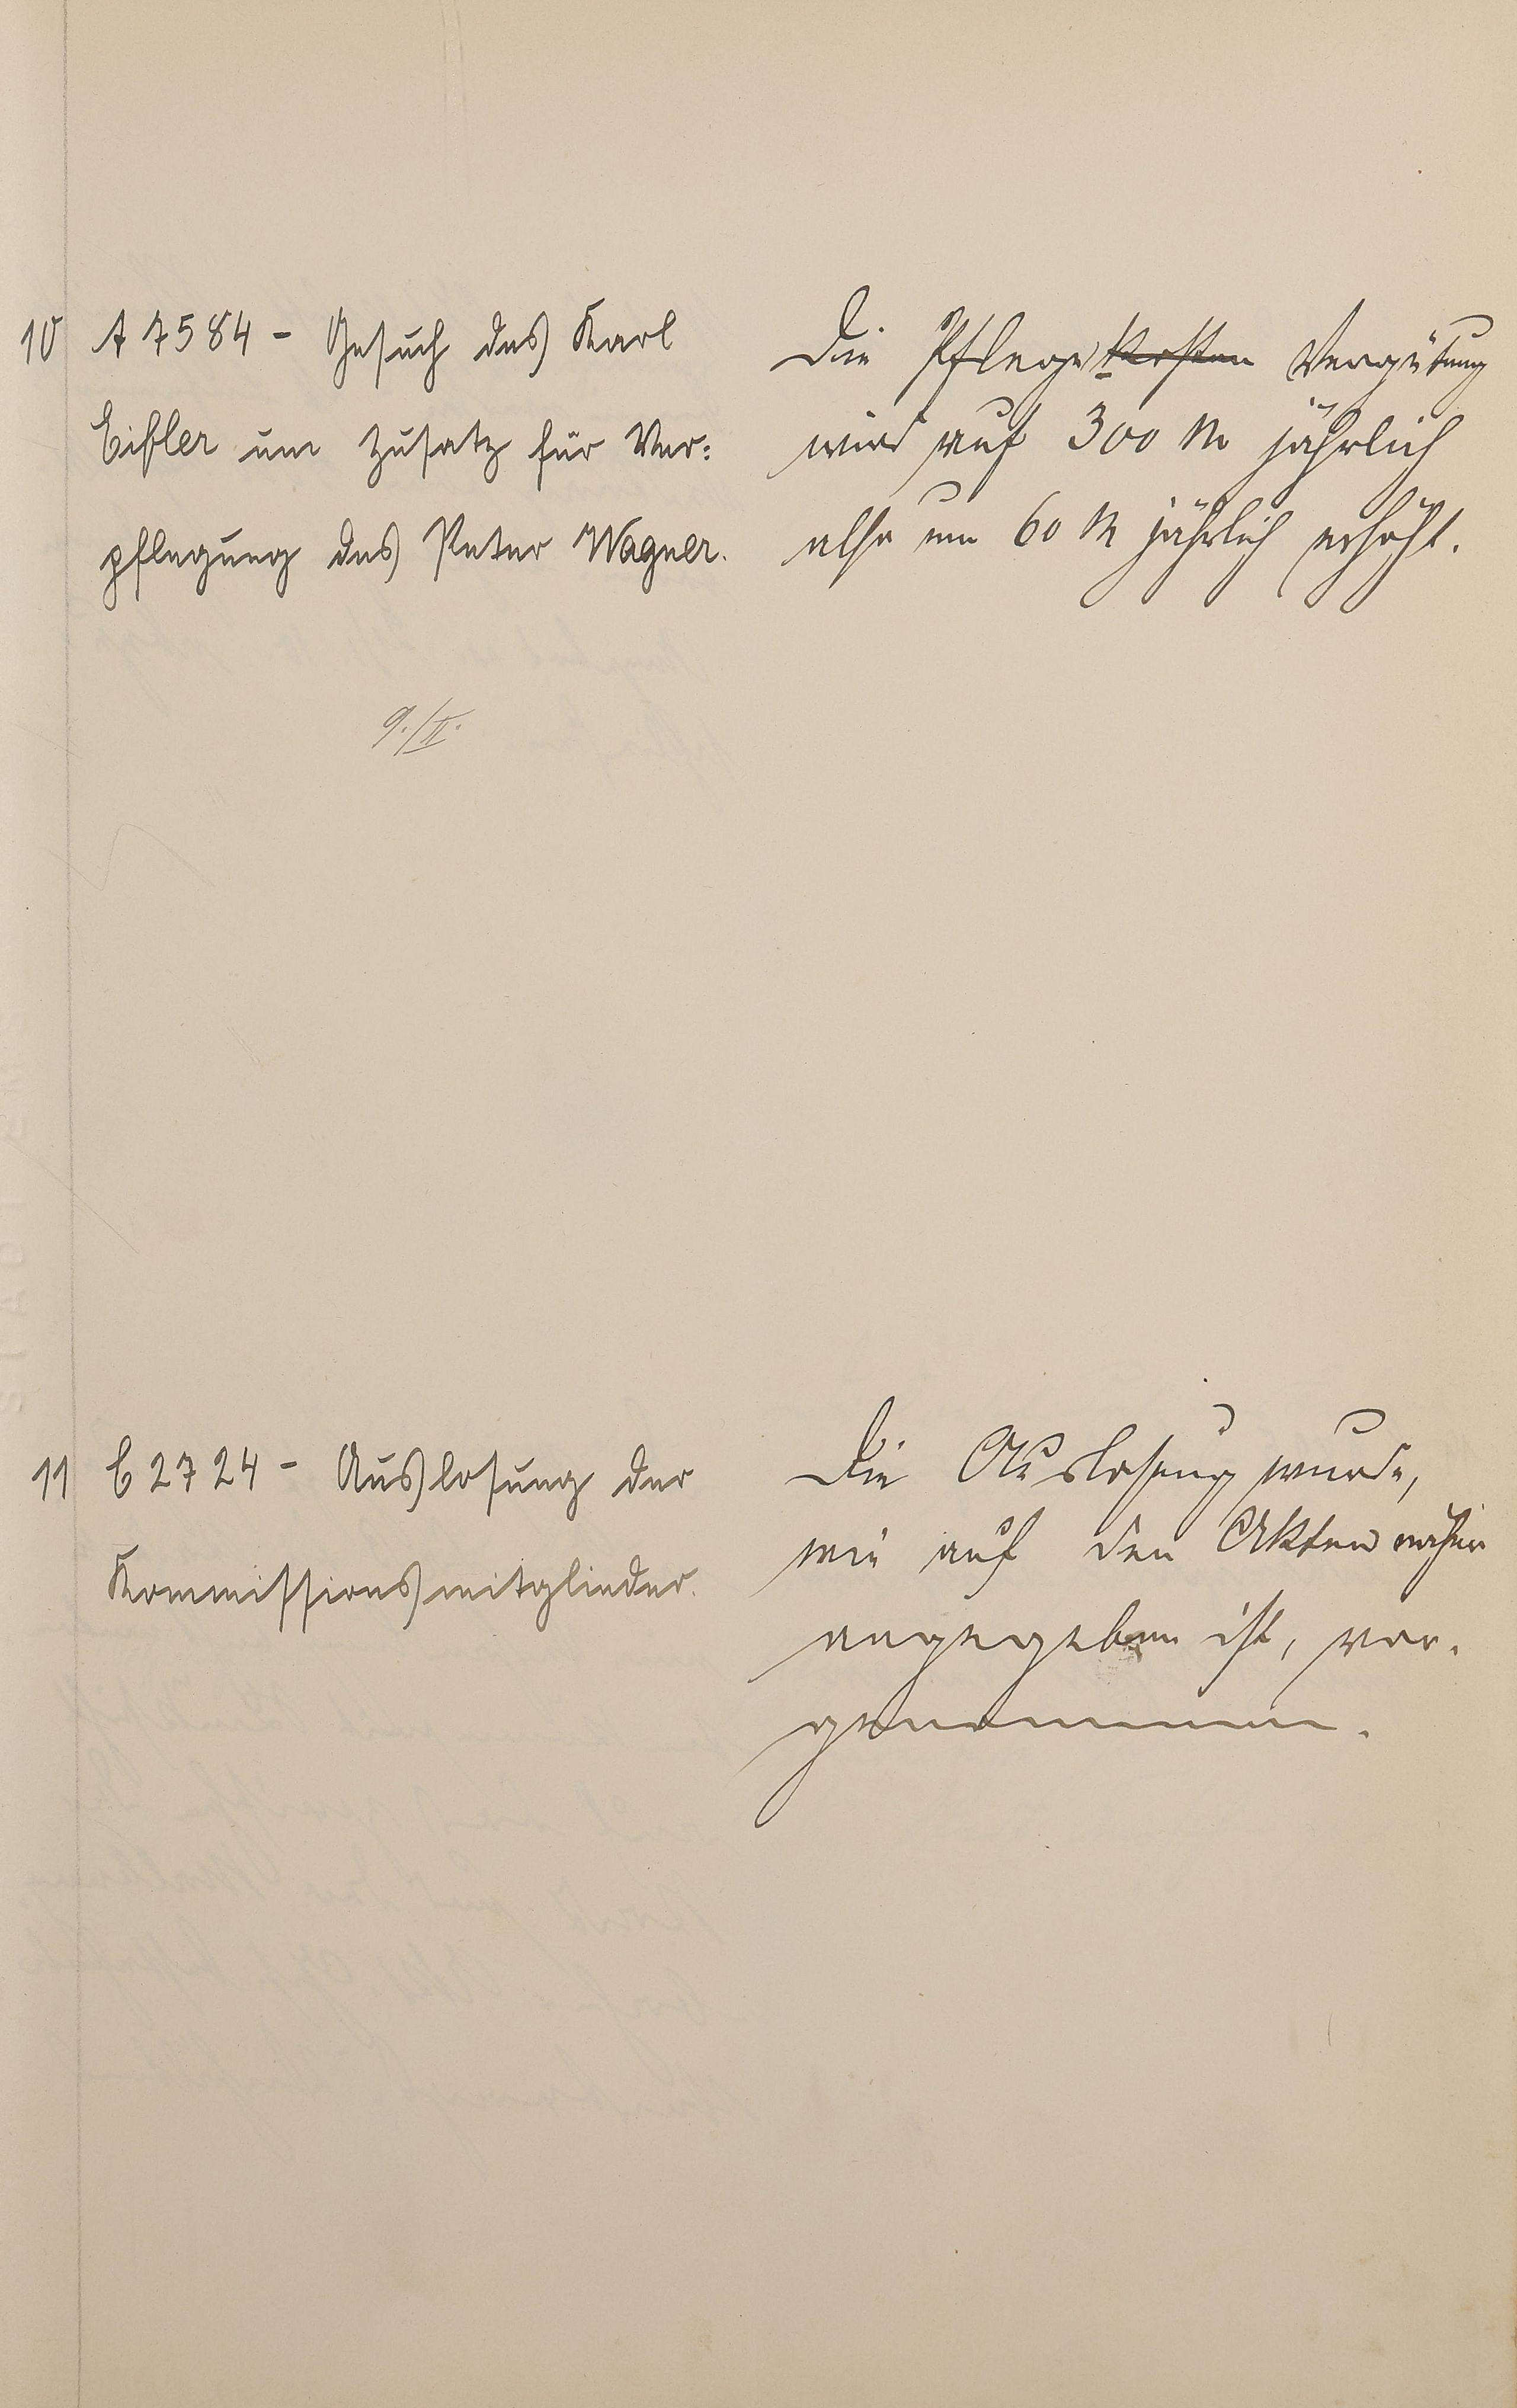 10 A 7584 - Gesuch des Karl
Eißler um Zusatz für Ver:
pflegung des Peter Wagner.
9./II.
Die Pflegekosten Vergütung
wird auf 300 M jährlich
also um 60 M jährlich erhöht.
11 C 2724 - Auslosung der
Kommissionsmitglieder.
Die Auslosung wurde,
wie auf den Akten näher
angegeben ist, vor.
genommen.